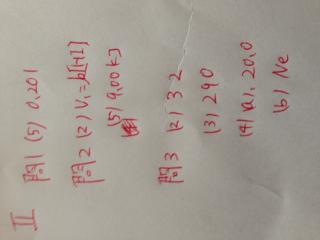 II
問1 (5) 0.201
問2 (2) V₁=k[HI]
(5) 9.00kJ
問3 (2) 32
(3) 290
(4) (a). 20.0
(b) Ne